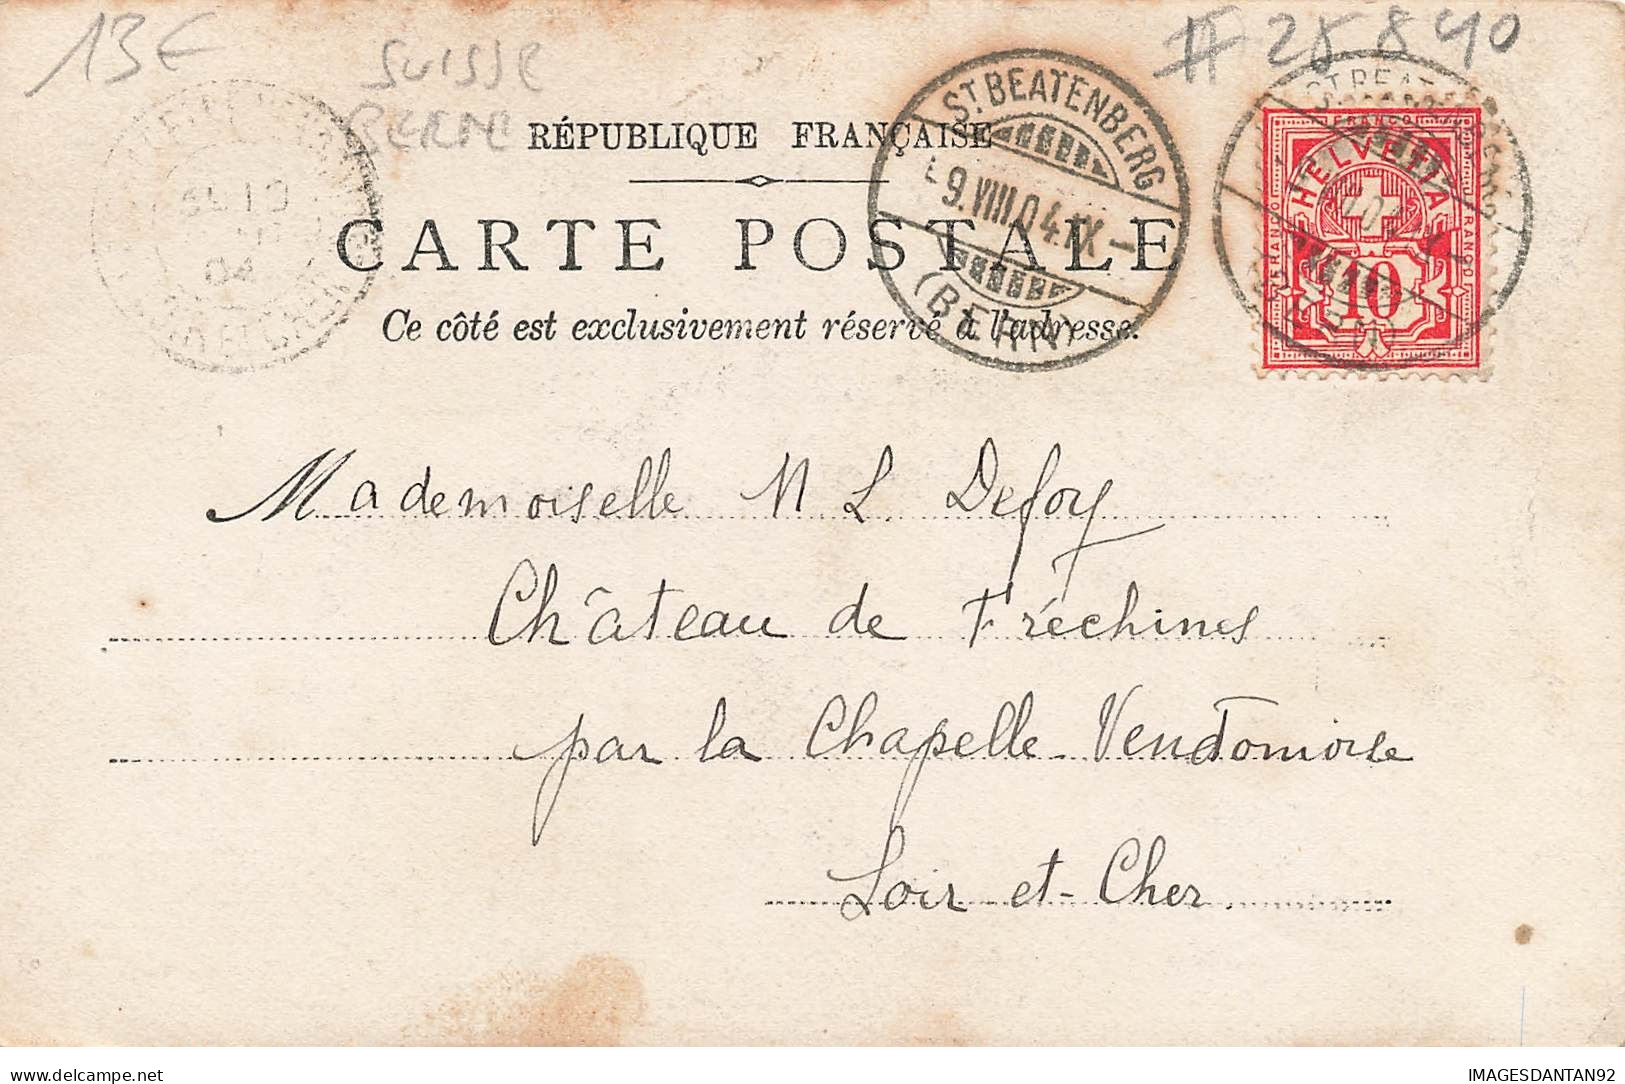 13€
SUISSE
BERNE
# 25840
RÉPUBLIQUE FRANÇAISE
CARTE POSTALE
Ce côté est exclusivement réservé à l'adresse.
ST. BEATENBERG
9.VIII.04.IX
(BERN)
FRANCO
HELVETIA
FRANCO
FRANCO
10
10
04
Mademoiselle M L Defoy
Château de Fréchines
par la Chapelle-Vendomoise
Loir et-Cher
delcampe.net
IMAGESDANTAN92